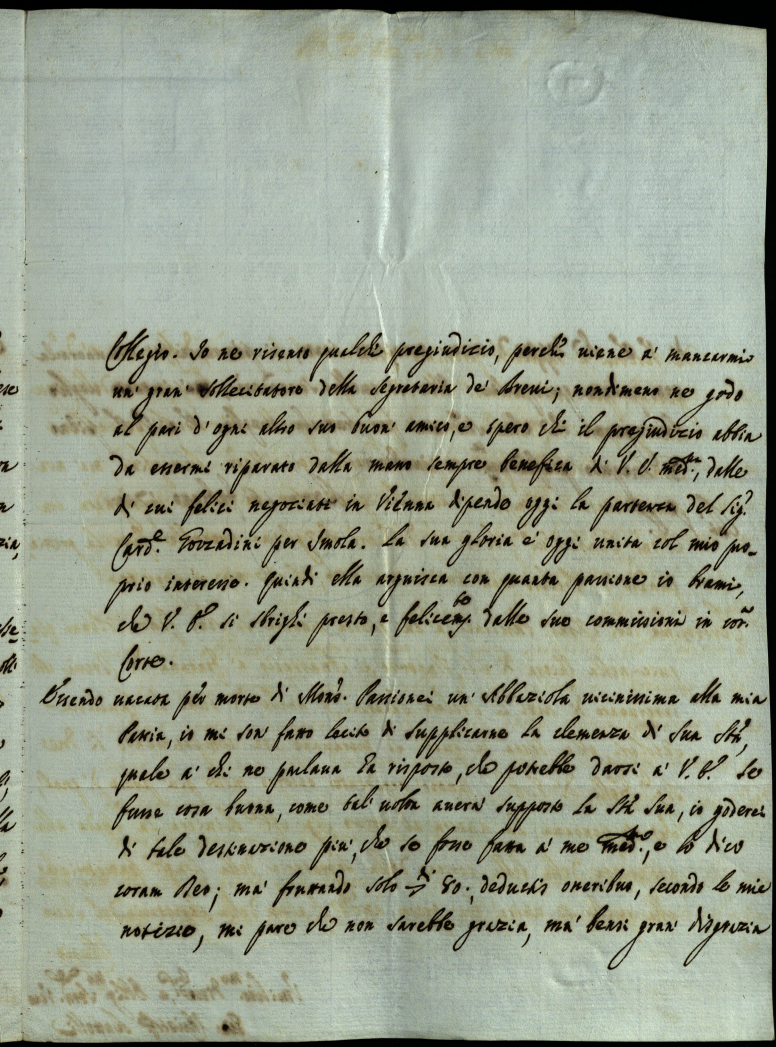 Collegio. Io ne risento qualche pregiudizio, perche viene a' mancarmi
un' gran' sollecitatore della Segretaria de' Brevi; nondimeno ne godo
al pari d'ogni altro suo buon' amico, e spero che il pregiudizio abbia
da essermi riparato dalla mano sempre benefica di V. S. med.ma, dalle
di cui felici negoziati in Vienna dipende oggi la partenza del Sig.r
Card.e Gozzadini per Imola. La sua gloria e' oggi unita col mio pro-
prio interesse. Quindi ella arguisca con quanta passione io brami,
che V. S. si sbrighi presto, e felicem.te dalle sue commissioni in cot.a
Corte.
Essendo vacata per morte di Mons.r Passionei un' Abbaziola vicinissima alla mia
Patria, io mi son' fatto lecito di supplicarne la clemenza di Sua St.à,
quale a' chi ne parlava ha risposto, che potrebbe darsi a' V. S. Se
fusse cosa buona, come tal' volta avera' supposto la St.à Sua, io goderei
di tale destinazione più, che se fosse fatta a' me med.mo, e lo dico
coram Deo; ma' fruttando solo di 80. deductis oneribus, secondo le mie
notizie, mi pare che non sarebbe grazia, ma' bensi gran' disgrazia